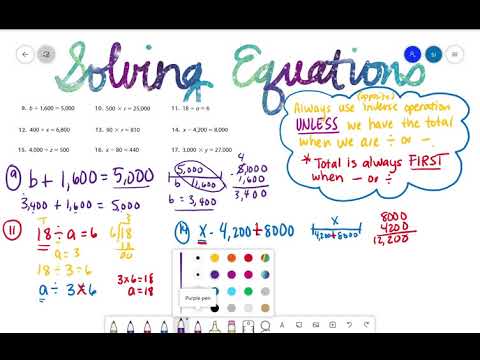 Solving Equations
9. b + 1,600 = 5,000 10. 500 × r = 25,000 11. 18 ÷ a = 6
12. 400 + x = 6,800 13. 90 × r = 810 14. x − 4,200 = 8,000
15. 4,000 ÷ z = 500 16. x − 80 = 440 17. 3,000 × y = 27,000
(opposite)
Always use inverse operation
UNLESS we have the total
when we are ÷ or −.
* Total is always FIRST
when − or ÷
9 b + 1,600 = 5,000
3,400 + 1,600 = 5,000
5,000
b 1,600
b = 3,400
4
5,000
- 1,600
3,400
11 T
18 ÷ a = 6
÷ a = 3
18 ÷ 3 = 6
a ÷ 3 × 6
3
6 18
18
00
3×6=18
a=18
14 x - 4,200 + 8000
x
4,200 + 8000
8000
4200
12,200
Purple pen